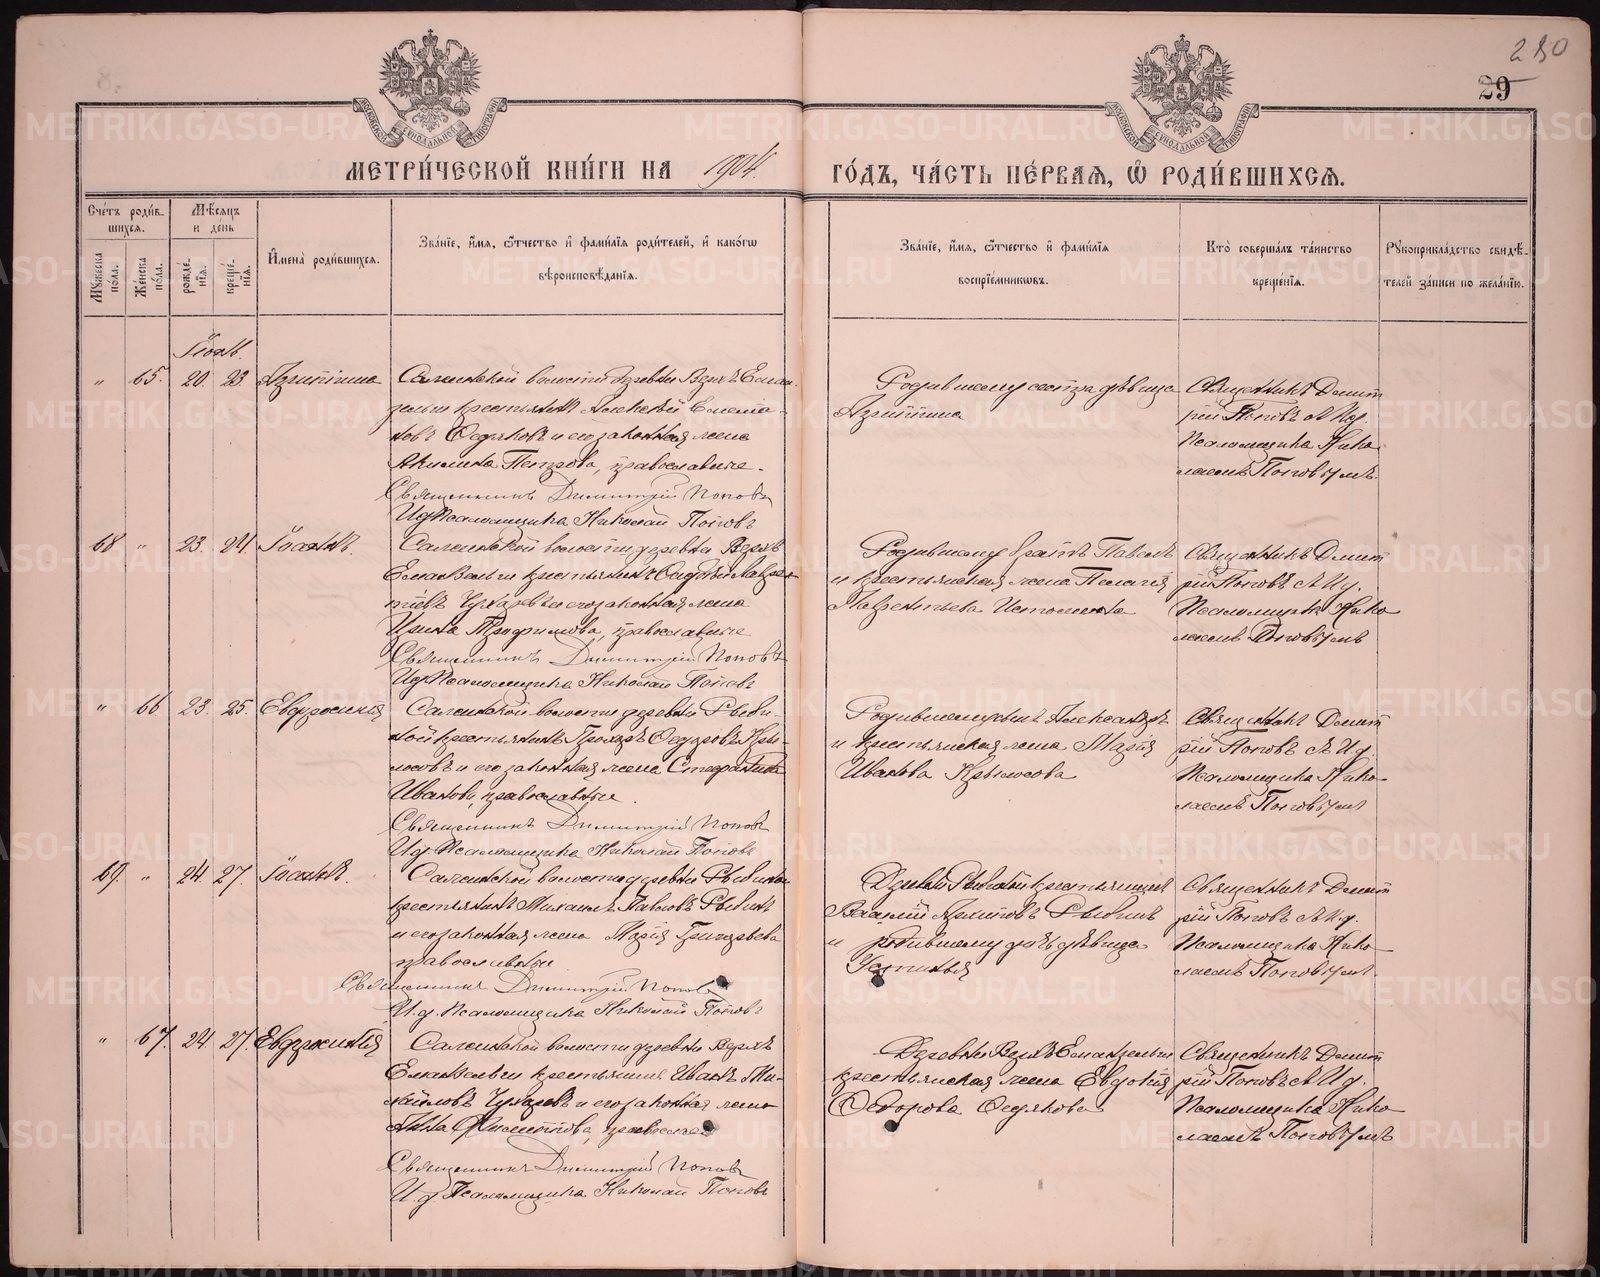 280
29
МЕТРИ́ЧЕСКОЙ КНИ́ГИ НА 1904. ГО́ДЪ, ЧА́СТЬ ПЕ́РВАЯ, Ѡ РОДИ́ВШИХСЯ.
Счéтъ роди́в-
шихся.
Мꙋжеска по́ла.
Же́нска по́ла.
Мѣ́сяцъ
и де́нь
рожде́-
нїя.
креще́-
нїя.
И҆мена̀ роди́вшихся.
Зва́нїе, и҆́мя, ѻ҆́тчество и҆ фами́лїя роди́телей, и҆ како́гѡ
вѣроисповѣ́данїя.
Зва́нїе, и҆́мя, ѻ҆́тчество и҆ фами́лїя
воспрїе́мникѡвъ.
Кто̀ соверша́лъ та́инство
креще́нїя.
Рꙋкоприкла́дство свидѣ́-
телей за́писи по жела́нїю.
Іюнь.
" 65. 20. 23. Агриппина
Саженской волости деревни Верхъ Еман-
зельги крестьянинъ Алексей
Ѳедяковъ и его законная жена
Акилина Петрова, православные.
Священникъ Димитрій Поповъ
И.д. Псаломщика Николай Поповъ
Родившемуся сестра дѣвица
Агриппина
Священникъ Димит
рій Поповъ съ И.д.
Псаломщика Нико-
лаемъ Поповымъ.
68 " 23. 24. Іоаннъ.
Саженской волости деревни Верхъ
крестьянинъ Андрей Лаврен
тіевъ и его законная жена
Ирина Трофимова, православные
Священникъ Димитрій Поповъ
И.д. Псаломщика Николай Поповъ
Родившемуся братъ Павелъ
и крестьянская жена Пелагія
Лаврентьева Истомина
Священникъ Димит
рій Поповъ съ И.д.
Псаломщика Нико
лаемъ Поповымъ
" 66 23. 25. Евфросинія
Саженской волости деревни Рыби-
ной крестьянинъ Ѳедоровъ Кры-
лосовъ и его законная жена Стефанида
Иванова, православные.
Священникъ Димитрій Поповъ
И.д. Псаломщика Николай Поповъ
Александръ
и крестьянская жена Марія
Иванова Крылосова
Священникъ Димит
рій Поповъ съ И.д.
Псаломщика Нико-
лаемъ Поповымъ
69. " 24. 27. Іоаннъ.
Саженской волости деревни Рыбиной
крестьянинъ Михаилъ Павловъ Рыбинъ
и его законная жена Марія Григорьева
православные
Священникъ Димитрій Поповъ
И.д. Псаломщика Николай Поповъ
Деревни Рыбиной крестьянинъ
Василій Архиповъ Рыбинъ
и родившемуся дѣвица
Устинья
Священникъ Димит
рій Поповъ съ И.д.
Псаломщика Нико-
лаемъ Поповымъ.
" 67. 24. 27. Евфросинія
Саженской волости деревни Верхъ
крестьянинъ Иванъ Ми-
хайловъ и его законная жена
Анна Филиппова, православные
Священникъ Димитрій Поповъ
И.д. Псаломщика Николай Поповъ
Деревни Верхъ Еманзельги
крестьянская жена Евдокія
Ѳедорова Ѳедякова
Священникъ Димит
рій Поповъ съ И.д.
Псаломщика Нико-
лаемъ Поповымъ
METRIKI.GASO-URAL.RU